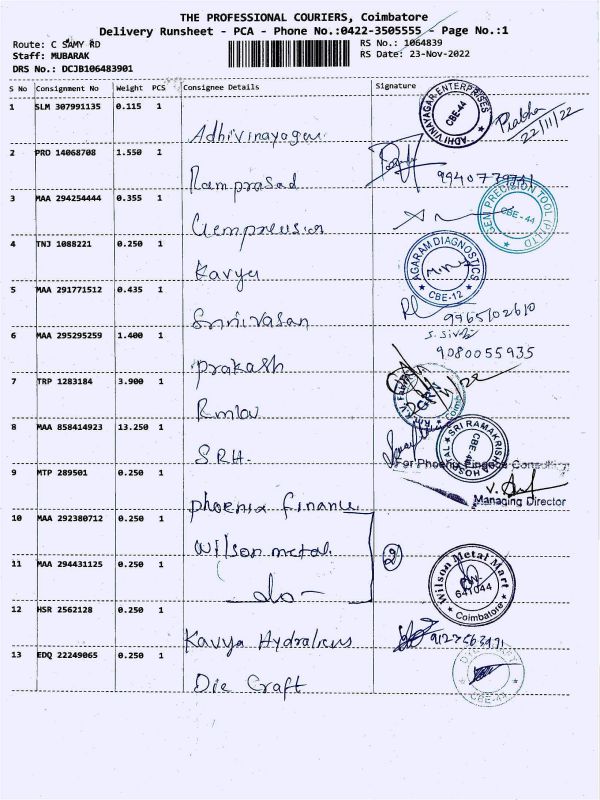 THE PROFESSIONAL COURIERS, Coimbatore
Delivery Runsheet - PCA - Phone No.:0422-3505555 - Page No.:1
Route: C SAMY RD
RS No.: 1064839
Staff: MUBARAK
RS Date: 23-Nov-2022
DRS No.: DCJB106483901
S No Consignment No Weight PCS Consignee Details Signature
1 SLM 307991135 0.115 1
ADHI VINAYAGAR ENTERPRISES CBE-44
Prabha
22/11/22
Adhivinayagar
2 PRO 14068708 1.550 1
Ramprasad
3 MAA 294254444 0.355 1
GEM PRECISION TOOL (P) LTD CBE-44
4 TNJ 1088221 0.250 1
AGARAM DIAGNOSTICS CBE-12
Kavya
5 MAA 291771512 0.435 1
9965102610
Srinivasan
6 MAA 295295259 1.400 1
9080055935
prakash
7 TRP 1283184 3.900 1
8 MAA 858414923 13.250 1
SRI RAMAKRISHNA HOSPITAL
SRH.
For Phoenix Finance
9 MTP 289501 0.250 1
Managing Director
phoenix finance
10 MAA 292380712 0.250 1
Wilson metal
11 MAA 294431125 0.250 1
Wilson Metal Mart 641044 Coimbatore
do
12 HSR 2562128 0.250 1
Kavya
13 EDQ 22249065 0.250 1
DIE CRAFT CBE-44
Die Craft